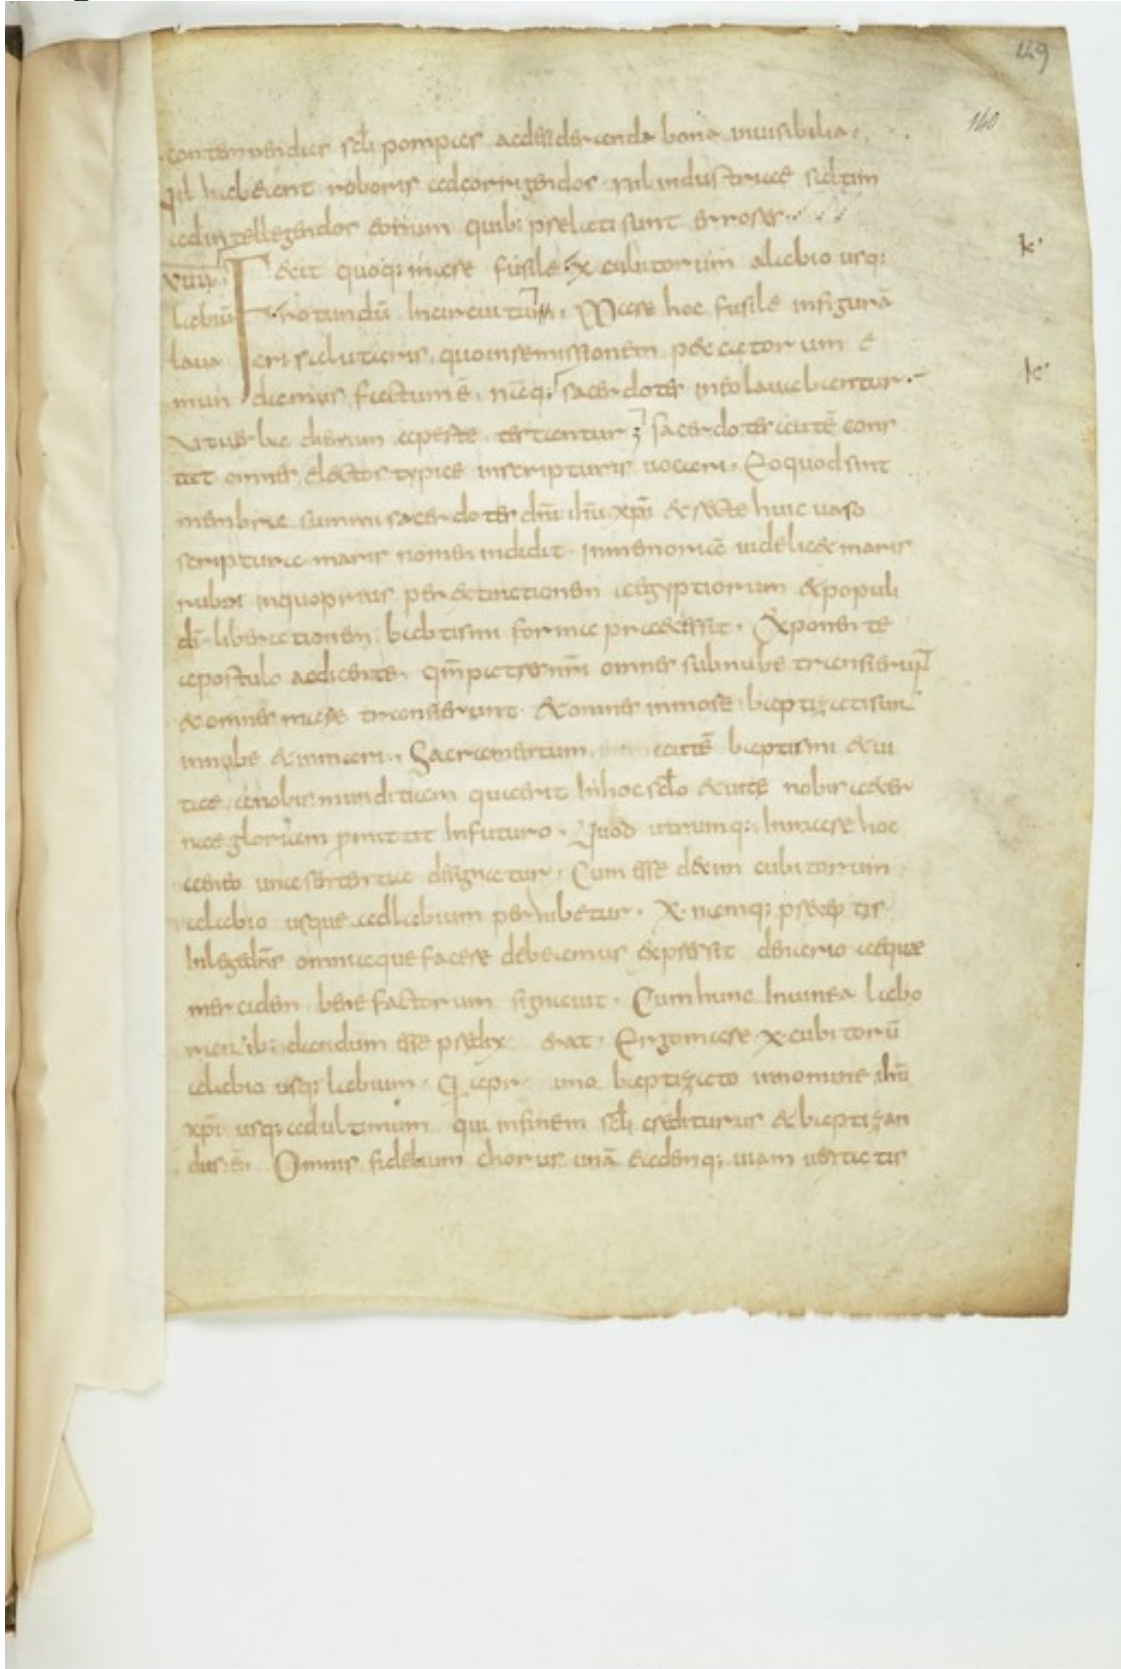 149
140
contemnendas scłi pompas ac desideranda bona inuisibilia.
nil habeant roboris ad corrigendos nil industriae saltim
ad intellegendos eorum quib; p̄selati sunt errores
VIIII Fecit quoq; mare fusile x cubitorum a labio usq;
labiū rotundū In circuitu. Mare hoc fusile in figurā
laua cri salutaris. quo in remissionem peccatorum e
mun damur factum ē. nāq; sacerdotes in eo lauabantur.
k
k
sacerdotes autē cons
tat omnes electos typice in scripturis uocari. Eo quod sint
membra summi sacerdotes dn̄i ihū xp̄i & recte huic uaso
scriptura maris nomen indidit. In memoriā uidelic& maris
rubri in quo prius per &tinctionem aegyptiorum & populi
dī liberationem. babtismi forma praecessit. Exponente
apostulo ac dicente. qm̄ patres nr̄i omnes sub nube transierun̄
& omnes mare transierunt. & omnes in mose baptizati sun̄
in nube & in mari. Sacramentum autē baptismi & ui
tae a nobis munditiam quaerit In hoc scło & uitę nobis a&er
nae gloriam p̄mittit In futuro. Quod utrumq; In mare hoc
aereo una sententia designatur. Cum esse decim cubitorum
a labio usque ad labium perhibetur. X. namq; p̄ceptis
In lege dn̄s omnia que facere debeamus expressit denario aeque
mercidem bene factorum signauit. Cum hunc In uinea labo
rantib; dandum esse p̄dix erat. Ergo mare x cubitorū
a labio usq; labium. Q a pr uno baptizato in nomine ihū
xp̄i usq; ad ultimum qui in finem scłi crediturus & baptizan
dus ē. Omnis fidelium chorus unā eademq; uiam ueritatis